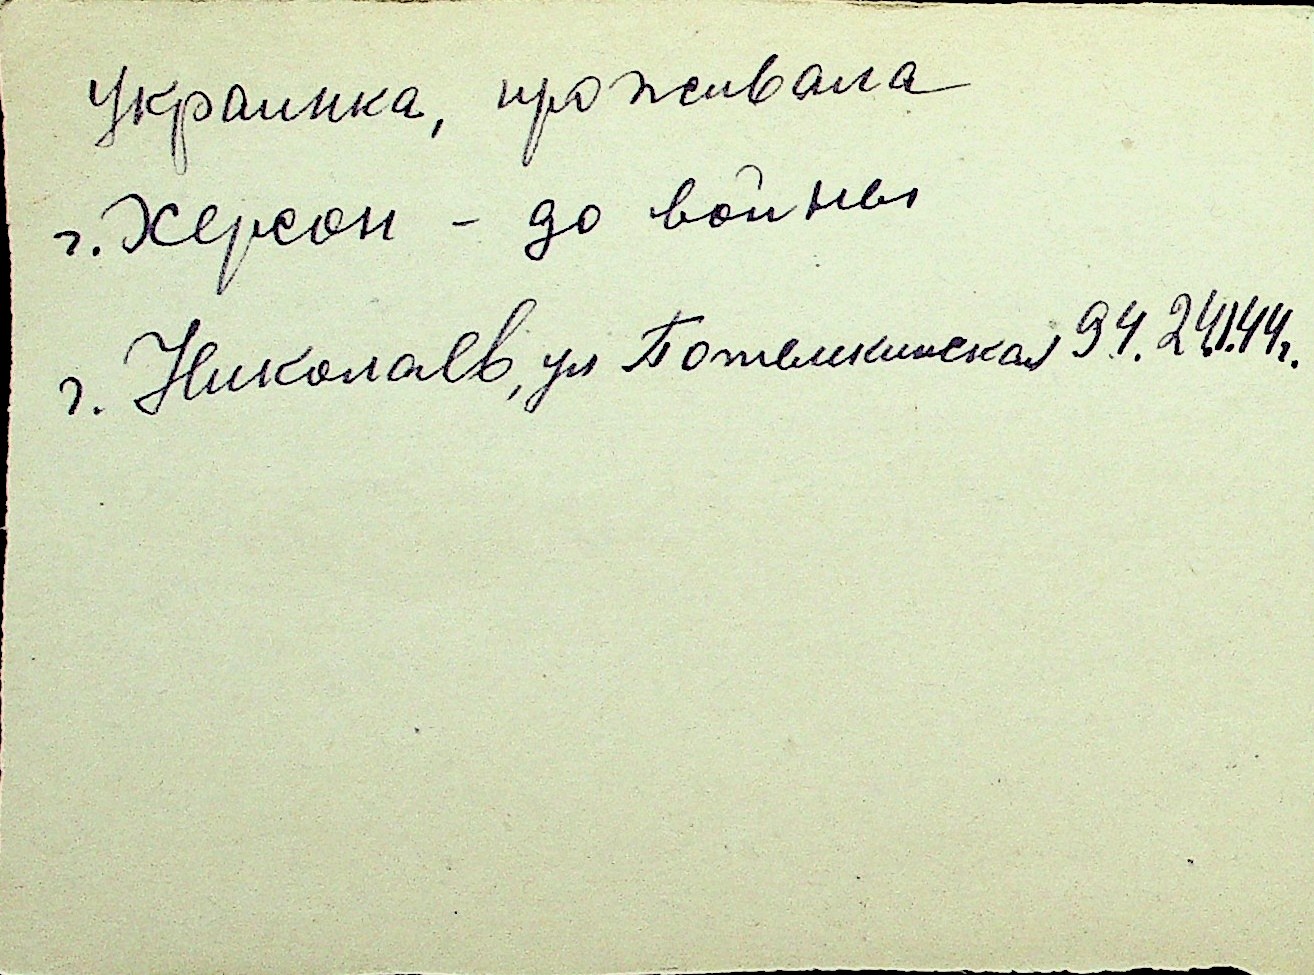 Украинка, проживала
г. Херсон - до войны
г. Николаев, ул Потемкинская 94. 24.I.44г.